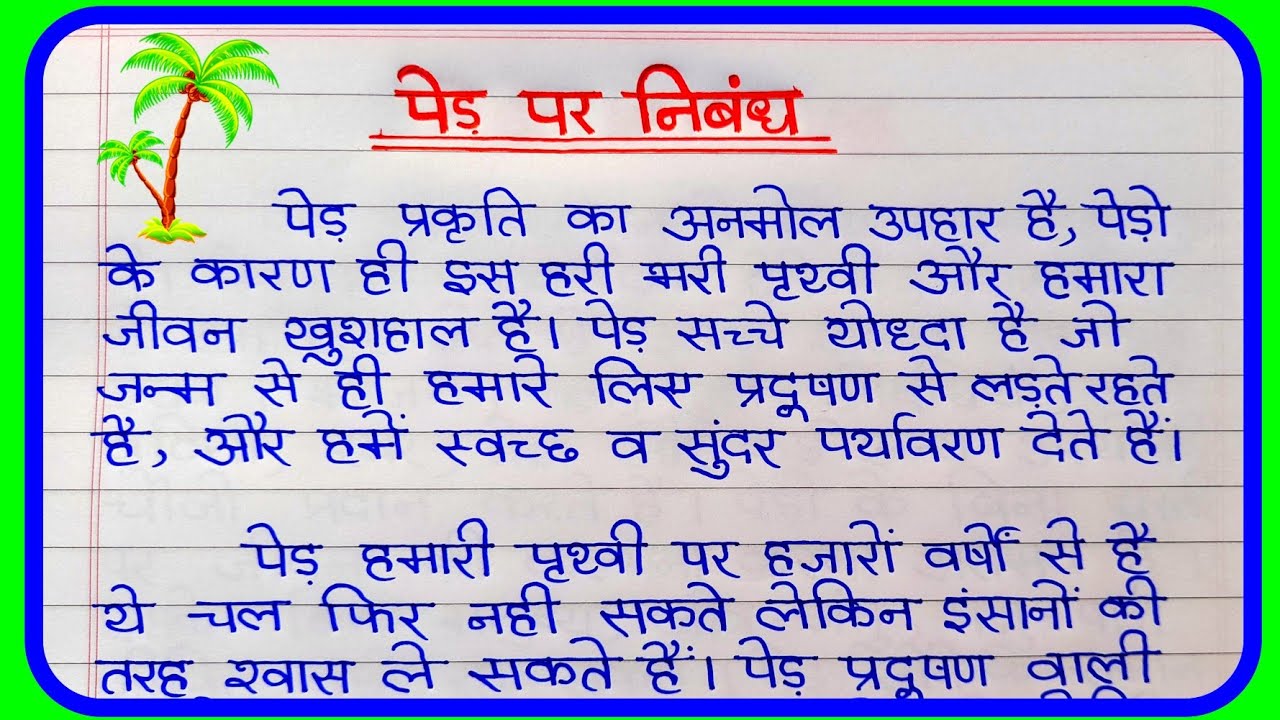 पेड़ पर निबंध
पेड़ प्रकृति का अनमोल उपहार है, पेड़ो
के कारण ही इस हरी भरी पृथ्वी और हमारा
जीवन खुशहाल है। पेड़ सच्चे योध्दा है जो
जन्म से ही हमारे लिए प्रदूषण से लड़ते रहते
है, और हमें स्वच्छ व सुंदर पर्यावरण देते हैं।
पेड़ हमारी पृथ्वी पर हजारों वर्षों से है
ये चल फिर नही सकते लेकिन इंसानों की
तरह श्वास ले सकते हैं। पेड़ प्रदूषण वाली